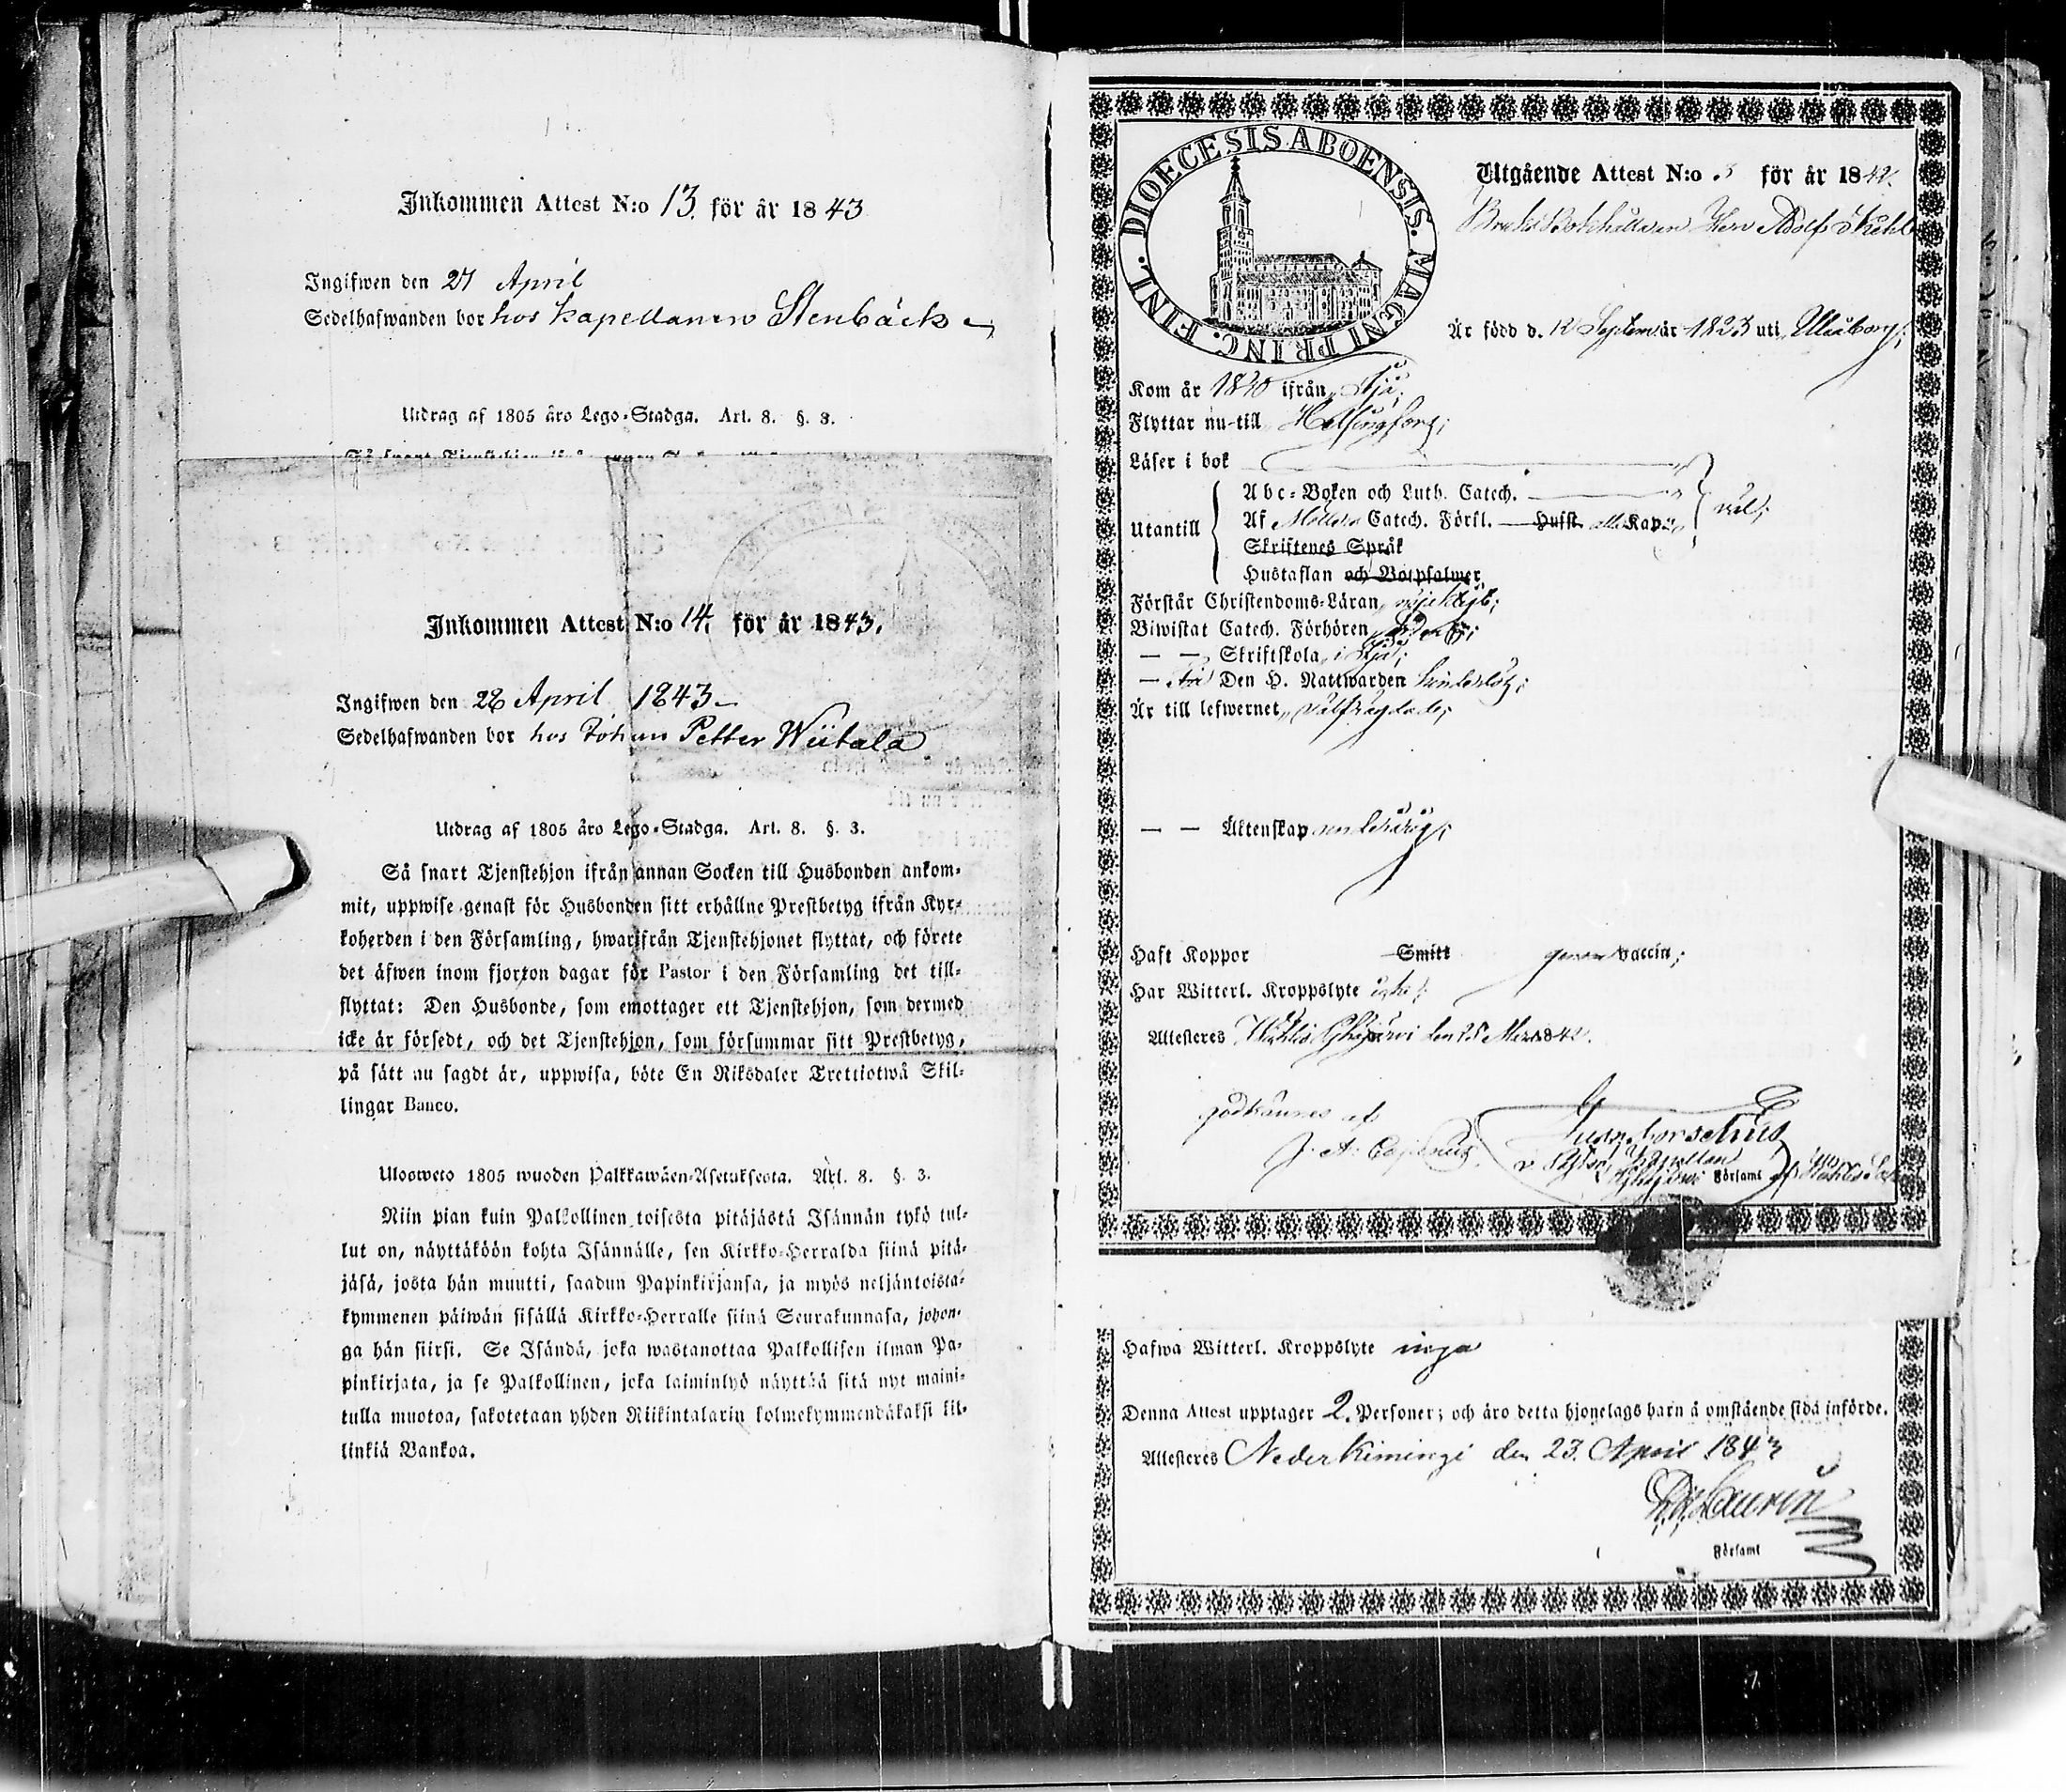 Inkommen Attest N:o 13. för år 1843
Ingifwen den 27 April
Sedelhafwanden bor hos Kapellanen Stenbäck
Utdrag af 1805 års Lego-Stadga. Art. 8. §. 3.
Inkommen Attest N:o 14. för år 1843.
Ingifwen den 28 April 1843
Sedelhafwanden bor hos Johan Petter Wiitala
Utdrag af 1805 års Lego-Stadga. Art. 8. §. 3.
Så snart Tjenstehjon ifrån annan Socken till Husbonden ankom-
mit, uppwise genast för Husbonden sitt erhållne Prestbetyg ifrån Kyr-
koherden i den Församling, hwarifrån Tjenstehjonet flyttat, och förete
det äfwen inom fjorton dagar för Pastor i den Församling det till-
flyttat: Den Husbonde, som emottager ett Tjenstehjon, som dermed
icke är försedt, och det Tjenstehjon, som försummar sitt Prestbetyg,
på sätt nu sagdt är, uppwisa, böte En Riksdaler Trettiotwå Skil-
lingar Banco.
Ulosweto 1805 wuoden Palkkawäen-Asetuksesta. Art. 8. §. 3.
Niin pian kuin Palkollinen toisesta pitäjästä Isännän tykö tul-
lut on, näyttäköön kohta Isännälle, sen Kirkko-Herralda siinä pitä-
jäsä, josta hän muutti, saadun Papinkirjansa, ja myös neljäntoista-
kymmenen päiwän sisällä Kirkko-Herralle siinä Seurakunnasa, johon-
ga hän siirsi. Se Isändä, joka wastanottaa Palkollisen ilman Pa-
pinkirjata, ja se Palkollinen, joka laiminlyö näyttää sitä nyt maini-
tulla muotoa, sakotetaan yhden Riikintalarin kolmekymmendäkaksi kil-
linkiä Bankoa.
DIOECESIS ABOENSIS. MAGNI PRINC. FINL.
Utgående Attest N:o 3 för år 1842.
Bruks Bokhållaren Herr Adolf
Är född d. 12 Septem år 1823 uti Uleåborg;
Kom år 1840 ifrån
Flyttar nu till Helsingfors;
Läser i bok
Abc-Boken och Luth. Catech.
väl;
Utantill
Af Möllers Catech. Förkl. Hufst. alla Kap:
Skriftenes Språk
Hustaflan och Botpsalmer
Förstår Christendoms-Läran
Biwistat Catech. Förhören
— — Skriftskola i
— Den H. Nattwarden
Är till lefwernet, wälfrägdade;
— — Äktenskap
Haft Koppor Smitt genom vaccin;
Har Witterl. Kroppslyte icke;
Attesteres den 25 1842.
godkännes af
J. A.
Kapellan
Församl
Hafwa Witterl. Kroppslyte inga
Denna Attest upptager 2. Personer; och äro detta hjonelags barn å omstående sida införde.
Attesteres Neder Kimingi den 23. April 1843
Församl